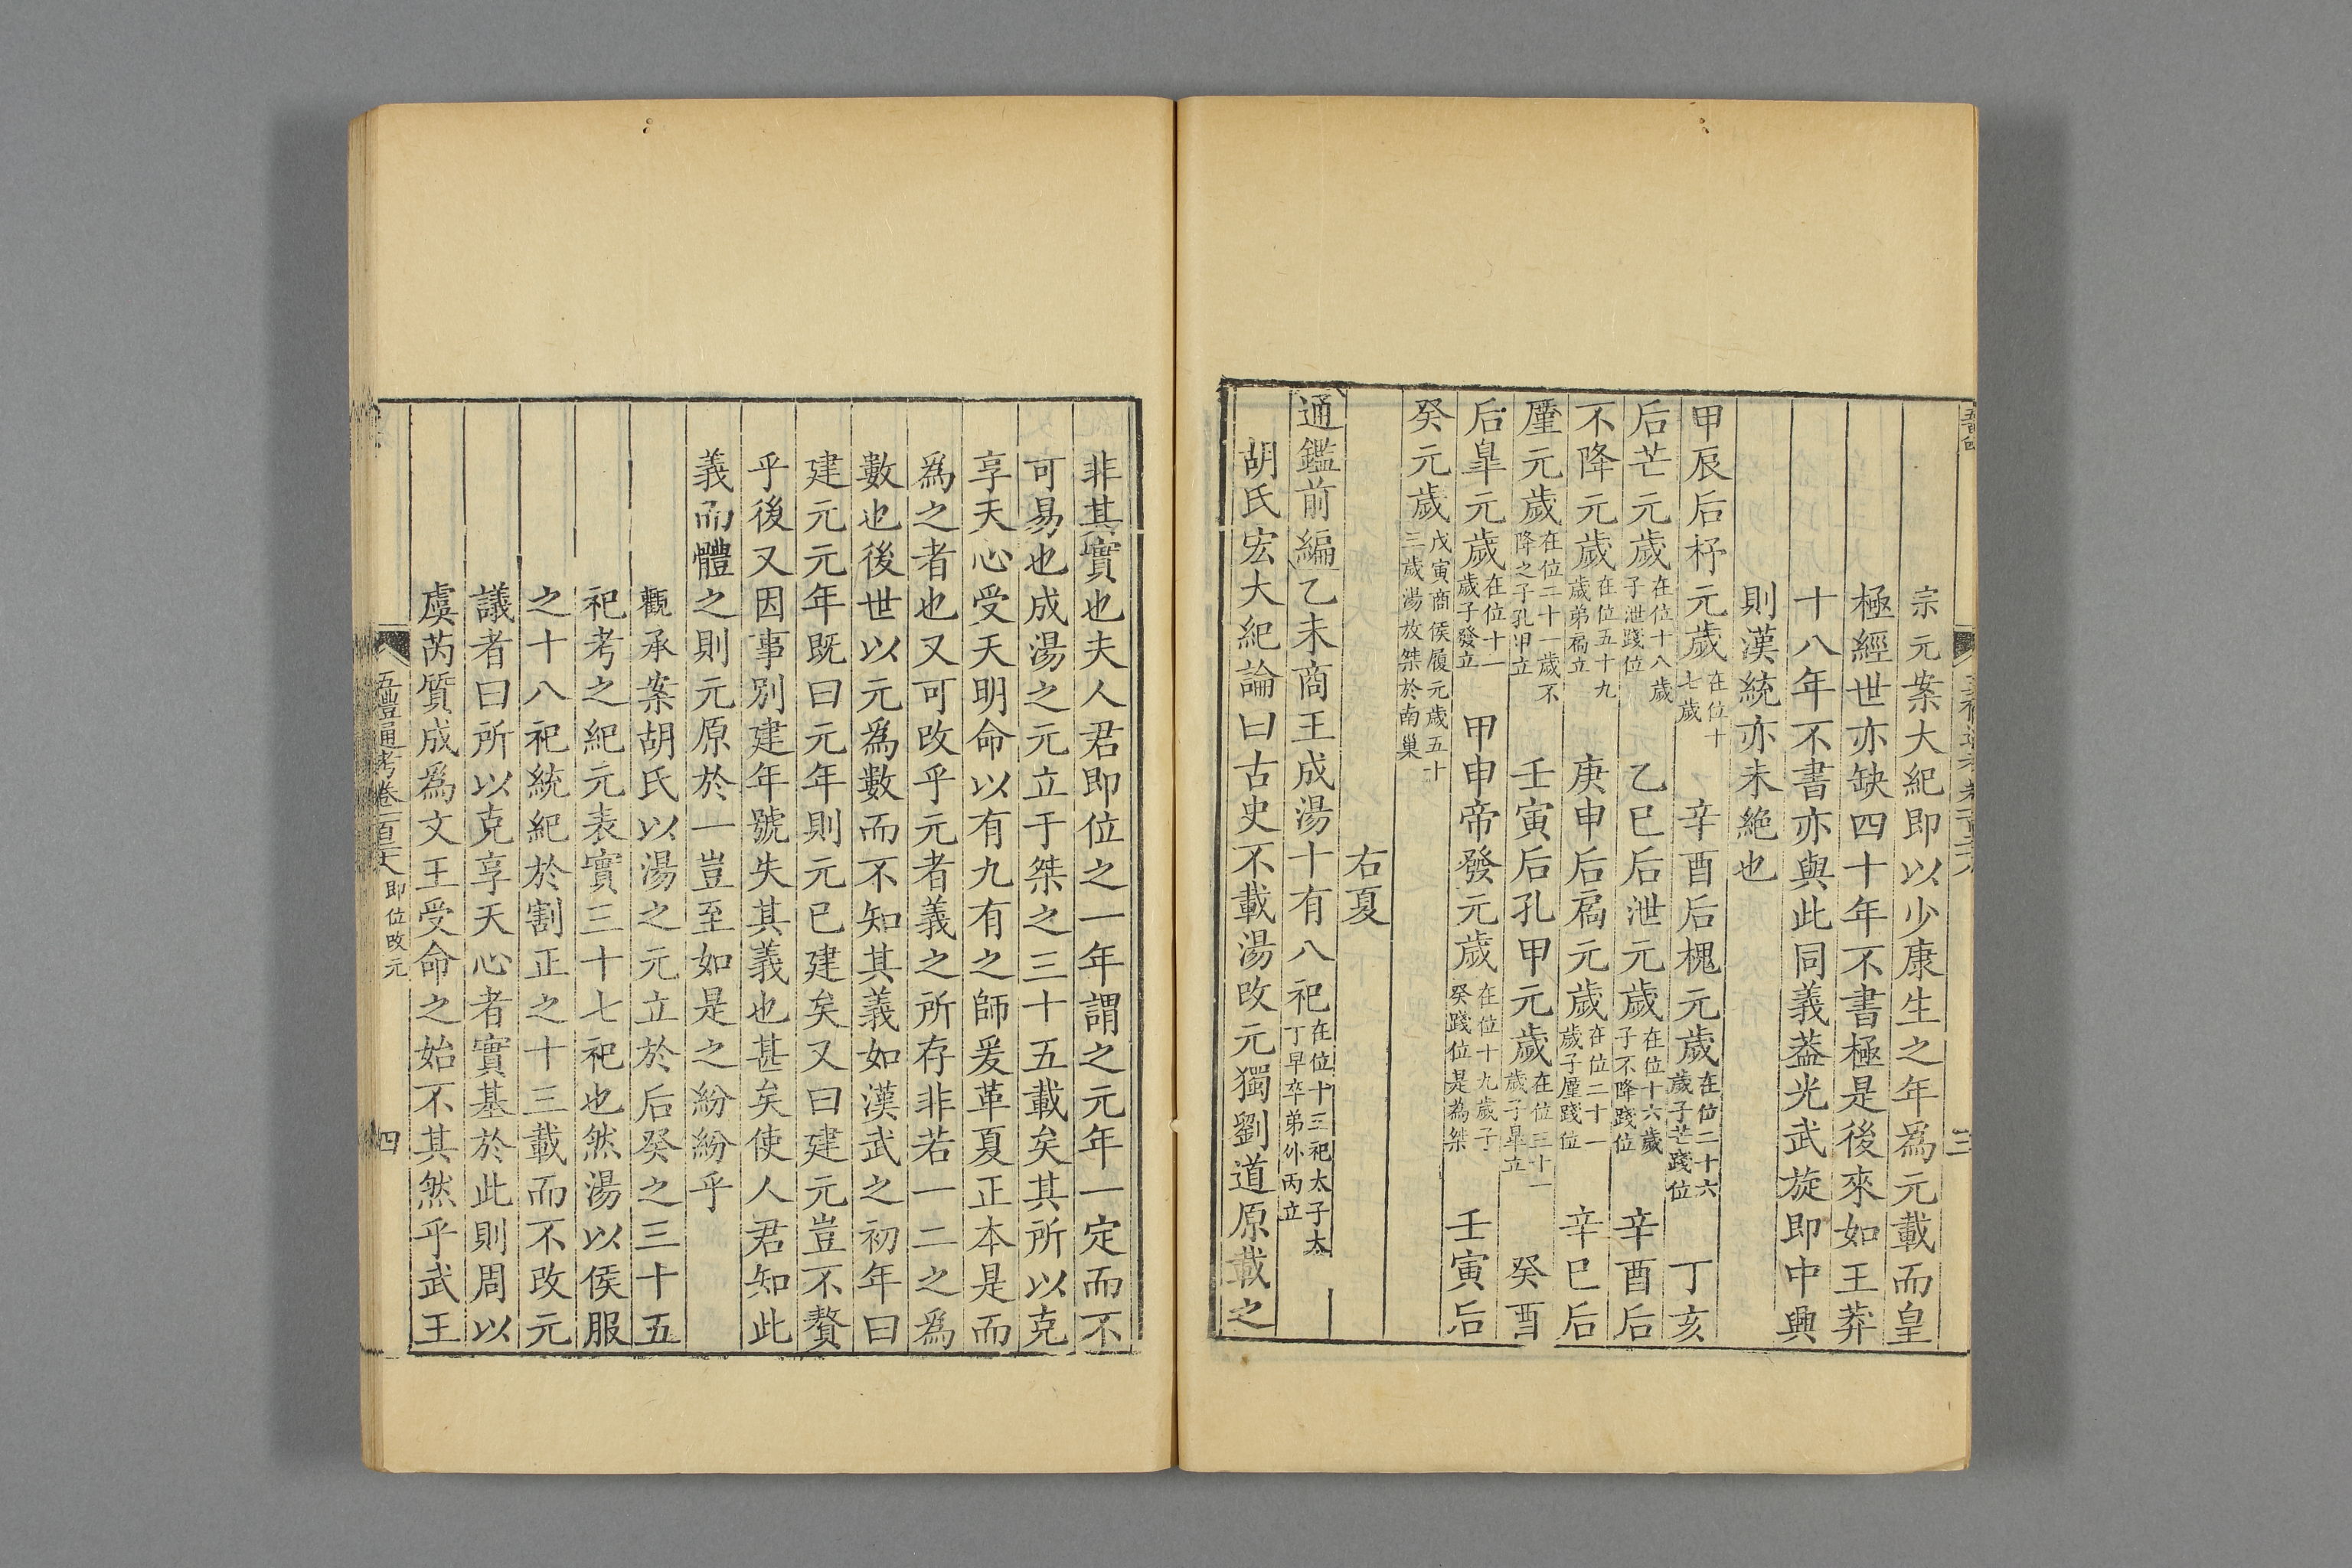 宗元案大紀即以少康生之年為元載而皇
極經世亦缺四十年不書極是後來如王莽
十八年不書亦與此同義葢光武旋即中興
則漢統亦未絶也
甲辰后杼元歲在位十七歲 辛酉后槐元歲在位二十六歲子芒踐位 丁亥
后芒元歲在位十八歲子泄踐位 乙巳后泄元歲在位十六歲子不降踐位 辛酉后
不降元歲在位五十九歲弟扄立 庚申后扄元歲在位二十一歲子廑踐位 辛巳后
廑元歲在位二十一歲不降之子孔甲立 壬寅后孔甲元歲在位三十一歲子臯立 癸酉
后臯元歲在位十一歲子發立 甲申帝發元歲在位十九歲子癸踐位是為桀 壬寅后
癸元歲戊寅商侯履元歲五十三歲湯放桀於南巢
右夏
通鑑前編乙未商王成湯十有八祀在位十三祀太子太丁早卒弟外丙立
胡氏宏大紀論曰古史不載湯改元獨劉道原載之
三
非其實也夫人君即位之一年謂之元年一定而不
可易也成湯之元立于桀之三十五載矣其所以克
享天心受天明命以有九有之師爰革夏正本是而
為之者也又可改乎元者義之所存非若一二之為
數也後世以元為數而不知其義如漢武之初年曰
建元元年既曰元年則元已建矣又曰建元豈不贅
乎後又因事別建年號失其義也甚矣使人君知此
義而體之則元原於一豈至如是之紛紛乎
觀承案胡氏以湯之元立於后癸之三十五
祀考之紀元表實三十七祀也然湯以侯服
之十八祀統紀於割正之十三載而不改元
議者曰所以克享天心者實基於此則周以
虞芮質成為文王受命之始不其然乎武王
五禮通考卷一百二十八 即位改元
四